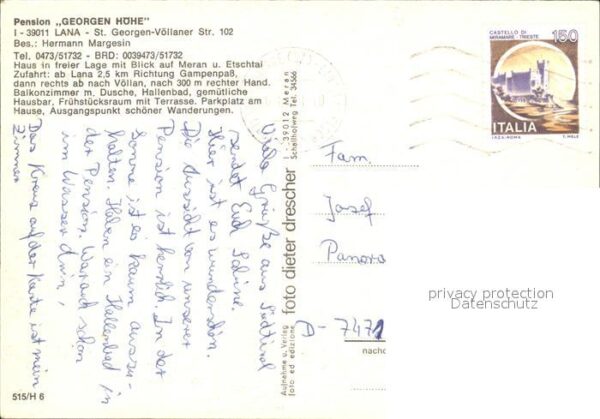 Pension „GEORGEN HÖHE"
I - 39011 LANA - St. Georgen-Völlaner Str. 102
Bes.: Hermann Margesin
Tel. 0473/51732 - BRD: 0039473/51732
Haus in freier Lage mit Blick auf Meran u. Etschtal
Zufahrt: ab Lana 2,5 km Richtung Gampenpaß,
dann rechts ab nach Völlan, nach 300 m rechter Hand.
Balkonzimmer m. Dusche, Hallenbad, gemütliche
Hausbar. Frühstücksraum mit Terrasse. Parkplatz am
Hause, Ausgangspunkt schöner Wanderungen.
Viele Grüße aus Südtirol
sendet Euch Sabine.
Hier ist es wunderschön.
Die Aussicht von unserer
Pension ist herrlich. In der
Sonne ist es kaum auszu-
halten. Haben ein Hallenbad in
der Pension. Waren auch schon
im Wasser drin,
Das Kreuz auf der Karte ist mein
Zimmer
515/H 6
Aufnahme u. Verlag
foto ed edizione
foto dieter drescher
I - 39012 Meran
Schallhofweg Tel. 34566
CASTELLO DI
MIRAMARE - TRIESTE
150
ITALIA
Fam.
Josef
Panora
D - 7471
nacho
privacy protection
Datenschutz